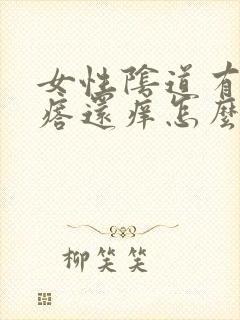 女性陰道有
痞還痒怎麼
柳笑笑